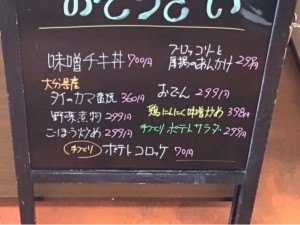 おとうとい
味噌チキ丼 700円
大分県産
タイのカマ塩焼 360円
野菜煮物 299円
ごぼう炒め 299円
手づくり ポテトコロッケ 70円
ブロッコリーと
のあんかけ 299円
おでん 299円
鶏にんにく味噌炒め 398円
手づくり ポテトサラダ 299円